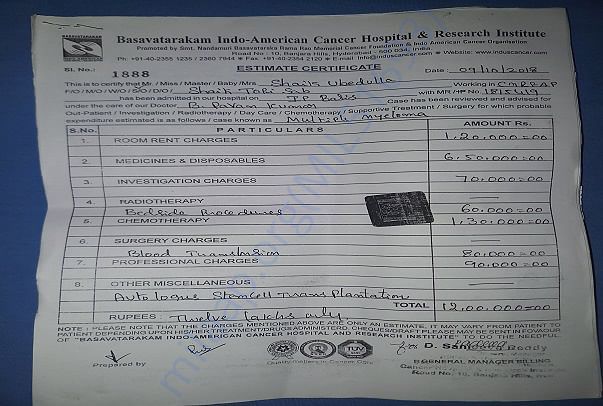 Basavatarakam Indo-American Cancer Hospital & Research Institute
Promoted by Smt. Nandamuri Basavataraka Rama Rao Memorial Cancer Foundation & Indo American Cancer Organisation
Road No : 10, Banjara Hills, Hyderabad - 500 034, India
Ph: +91-40-2355 1235 / 2360 7944 Fax: +91-40-2354 2120 E-mail Website: www.induscancer.com
ESTIMATE CERTIFICATE
Sl. No.: 1888 Date: 09/10/2018
This is to certify that Mr. / Miss / Master / Baby / Mrs. Shaik Ubedulla Working in
F/O / M/O / W/O / S/O / D/O / Shaik Sab with MR / HP No. 181549
has been admitted in our hospital on I.P. Basis Case has been reviewed and advised for
under the care of our Doctor Pavan Kumar
Out-Patient / Investigation / Radiotherapy / Day Care / Chemotherapy / Supportive Treatment / Surgery for which probable
expenditure estimated is as follows / case known as Multiple myeloma
S.No. PARTICULARS AMOUNT Rs.
1. ROOM RENT CHARGES 1,20,000=00
2. MEDICINES & DISPOSABLES 6,50,000=00
3. INVESTIGATION CHARGES 70,000=00
4. RADIOTHERAPY —
Bedside Procedures 60,000=00
5. CHEMOTHERAPY 1,30,000=00
6. SURGERY CHARGES —
Blood Transfusion 80,000=00
7. PROFESSIONAL CHARGES 90,000=00
8. OTHER MISCELLANEOUS —
Autologus Stemcell Transplantation
TOTAL 12,00,000=00
RUPEES : Twelve lakhs only
NOTE : PLEASE NOTE THAT THE CHARGES MENTIONED ABOVE ARE ONLY AN ESTIMATE. IT MAY VARY FROM PATIENT TO
PATIENT DEPENDING UPON HIS/HER TREATMENT/DRUGS ADMINISTERD. CHEQUES/DRAFT PLEASE MAY BE SENT IN FOVAOUR
OF "BASAVATARAKAM INDO-AMERICAN CANCER HOSPITAL AND RESEARCH INSTITUTE" TO DO THE NEEDFUL
Prepared by
Quality matters in Cancer Care
D. Reddy
GENERAL MANAGER BILLING
Road No. 10, Banjara Hills